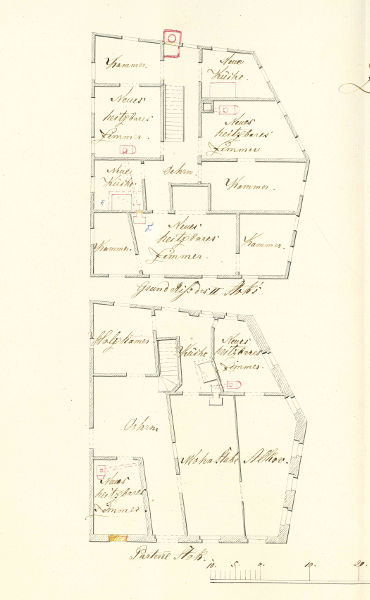 Kammer.
Neue
Küche.
Neues
heitzbares
Zimmer.
Neues
heitzbares
Zimmer
Neue
Küche.
Oehrn
Kammer.
Kammer
Neues
heitzbares
Zimmer.
Kammer.
Grund Riss des II Stoks
Holz Kamer
Küche
Neues
heitzbares
Zimmer.
Oehrn
Wohn Stube
Alkov.
Neues
heitzbares
Zimmer.
Parterre Stok.
10. 5. 0. 10. 20.